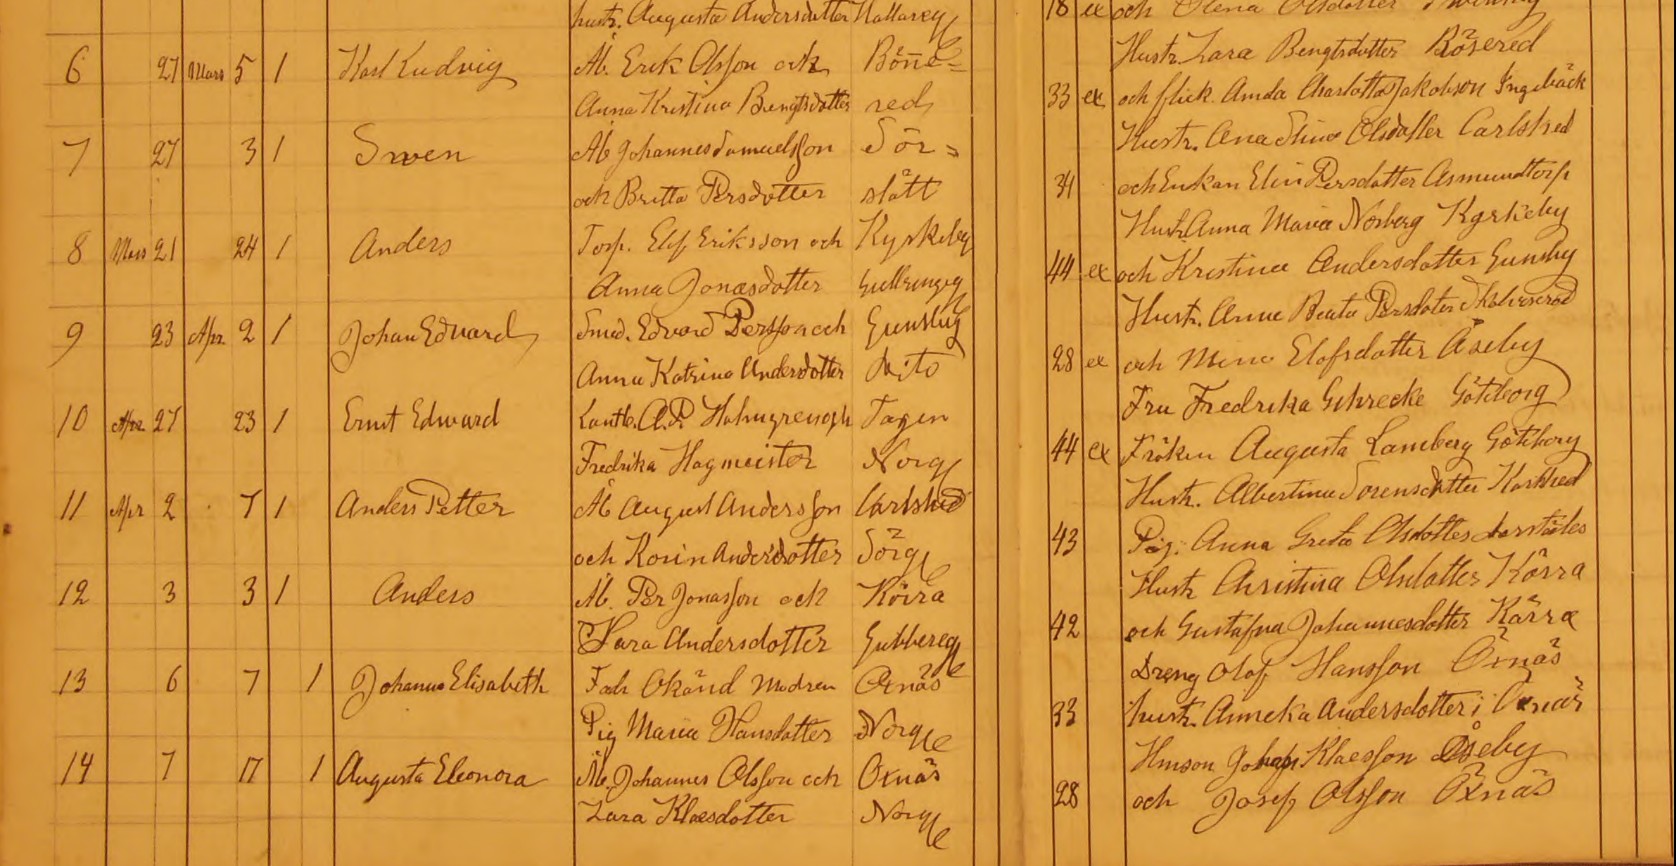 hustr. Augusta Andersdotter Hallarey 18 ex och Olena Olsdotter
Hustr. Lara Bengtsdotter Rösered
6 27 Mars 5 1 Karl Ludvig Åb. Erik Olsson och Böne=
33 ex och flick. Amda Charlotta Jakobson Ingebäck
Anna Kristina Bengtsdotter red
Hustr. Ana Stina Olsdotter Carlshed
7 27 3 1 Swen Åb Johannes Samuelsson Sör=
34 och Enkan Elin Persdotter Asmundtorp
och Britta Persdotter slätt
Hustr. Anna Maria Norberg Kyrkeby
8 Mars 21 24 1 Anders Torp. Elof Eriksson och Kyrkeby
44 ex och Kristina Andersdotter Gunsby
Anna Jonasdotter Gullringeg
Hustr. Anna Beata Persdoter
9 23 Apr. 2 1 Johan Edvard Smed. Edvard Persson och Gunsby
28 ex och Mina Elofsdotter Åseby
Anna Katrina Andersdotter Dito
Fru Fredrika Schrecke Göteborg
10 Apr 27 23 1 Ernst Edward Lantb. A.P. Holmgren och Tagen
44 ex Fröken Augusta Lamberg Göteborg
Fredrika Hagmeister Norg
Hustr. Albertina Sorensdotter Karlshed
11 Apr 2 7 1 Anders Petter Åb August Andersson Carlshed
43 Pig. Anna Greta Olsdotter
och Korin Andersdotter Sörg
Hustr Christina Olsdotter Körra
12 3 3 1 Anders Åb. Per Jonasson och Körra
42 och Gustafna Johannesdotter Kärra
Sara Andersdotter Gubbereg
Dreng Olof Hansson Öxnäs
13 6 7 1 Johanna Elisabeth Fadr Okänd Modren Öxnäs
33 hustr. Anneka Andersdotter i Öxnäs
Pig Maria Hansdotter Norge
Hmson Johan Klaesson Åseby
14 7 17 1 Augusta Eleonora Åb. Johannes Olsson och Öxnäs
28 och Josef Olsson Öxnäs
Lara Klaesdotter Norge